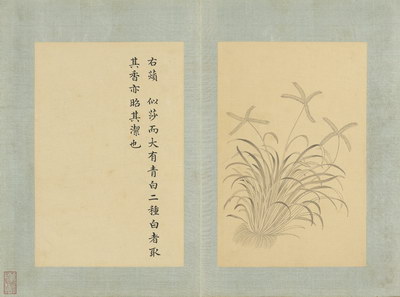 右蘋 似莎而大有青白二種白者取
其香亦昭其潔也